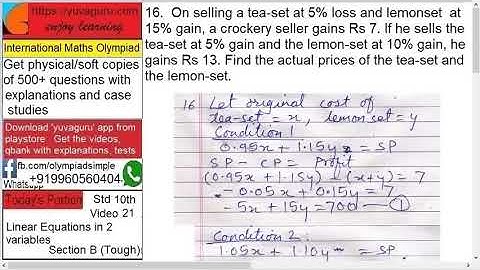 yuvaguru.com
enjoy learning
International Maths Olympiad
Get physical/soft copies
of 500+ questions with
explanations and case
studies
Download 'yuvaguru' app from
playstore Get the videos,
qbank with explanations, tests
fb.com/olympiadsimple
Whatsapp
+919960560404
Today's Portion
Std 10th
Video 21
Linear Equations in 2
variables
Section B (Tough)
16. On selling a tea-set at 5% loss and lemonset at
15% gain, a crockery seller gains Rs 7. If he sells the
tea-set at 5% gain and the lemon-set at 10% gain, he
gains Rs 13. Find the actual prices of the tea-set and
the lemon-set.
16 Let original cost of
tea-set = x, lemon set = y
Condition 1
0.95x + 1.15y = SP
SP - CP = Profit
(0.95x + 1.15y) - (x+y) = 7
- 0.05x + 0.15y = 7
- 5x + 15y = 700 - 1
Condition 2:
1.05x + 1.10y = SP